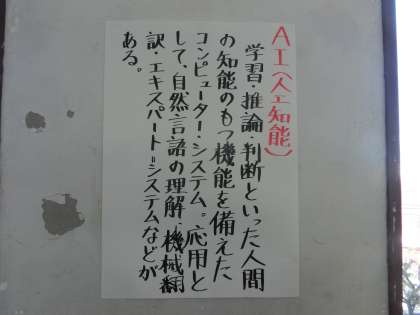 AI(人工知能)
学習・推論・判断といった人間
の知能のもつ機能を備えた
コンピューター・システム。応用と
して、自然言語の理解・機械翻
訳・エキスパート=システムなどが
ある。